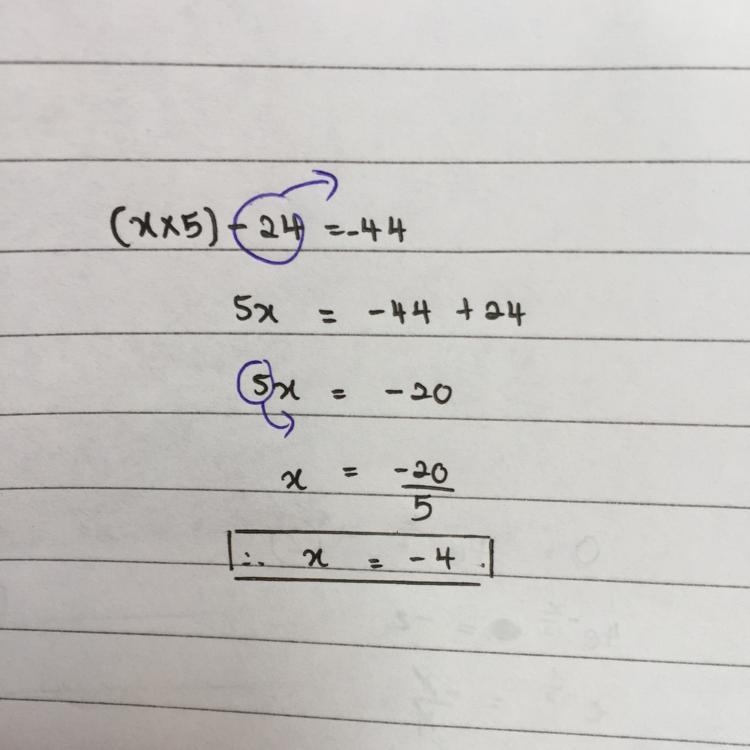 (x×5) - 24 = -44
5x = -44 + 24
5x = -20
x = -20/5
∴ x = -4.